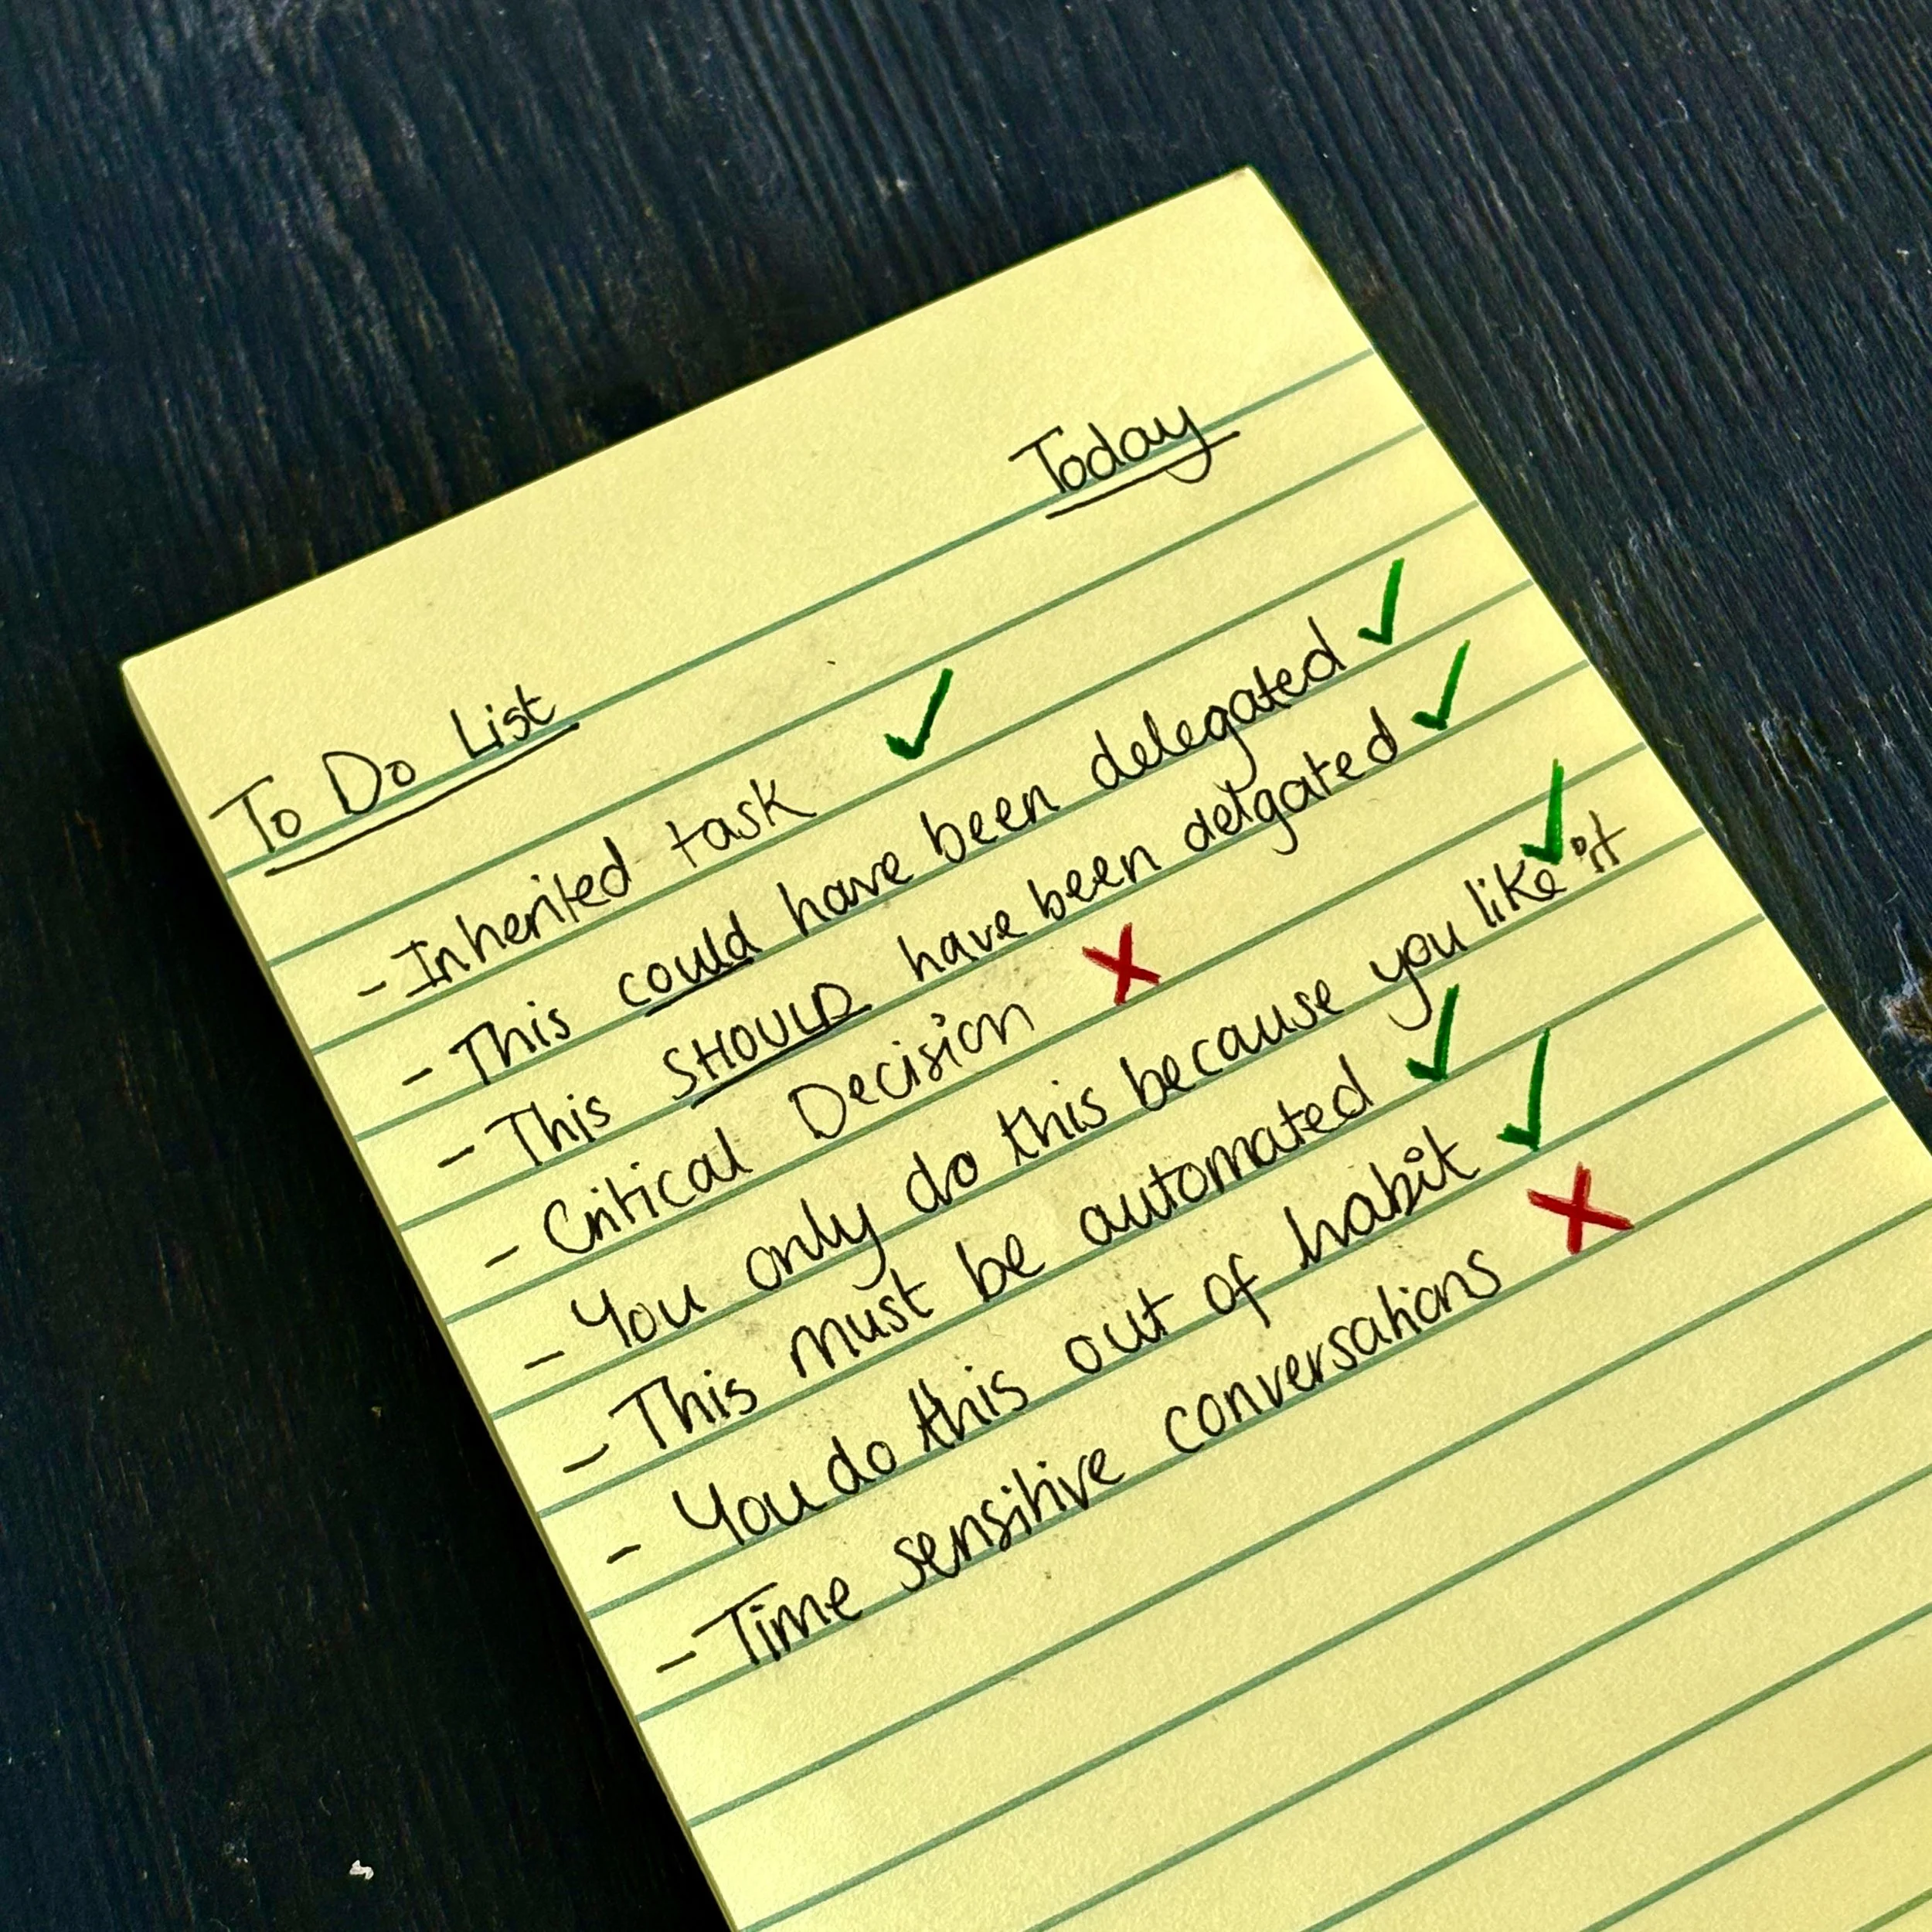 Today
To Do List
- Inherited task ✓
- This could have been delegated ✓
- This SHOULD have been delgated ✓
- Critical Decision ✗
- You only do this because you like it ✓
- This must be automated ✓
- You do this out of habit ✓
- Time sensitive conversations ✗